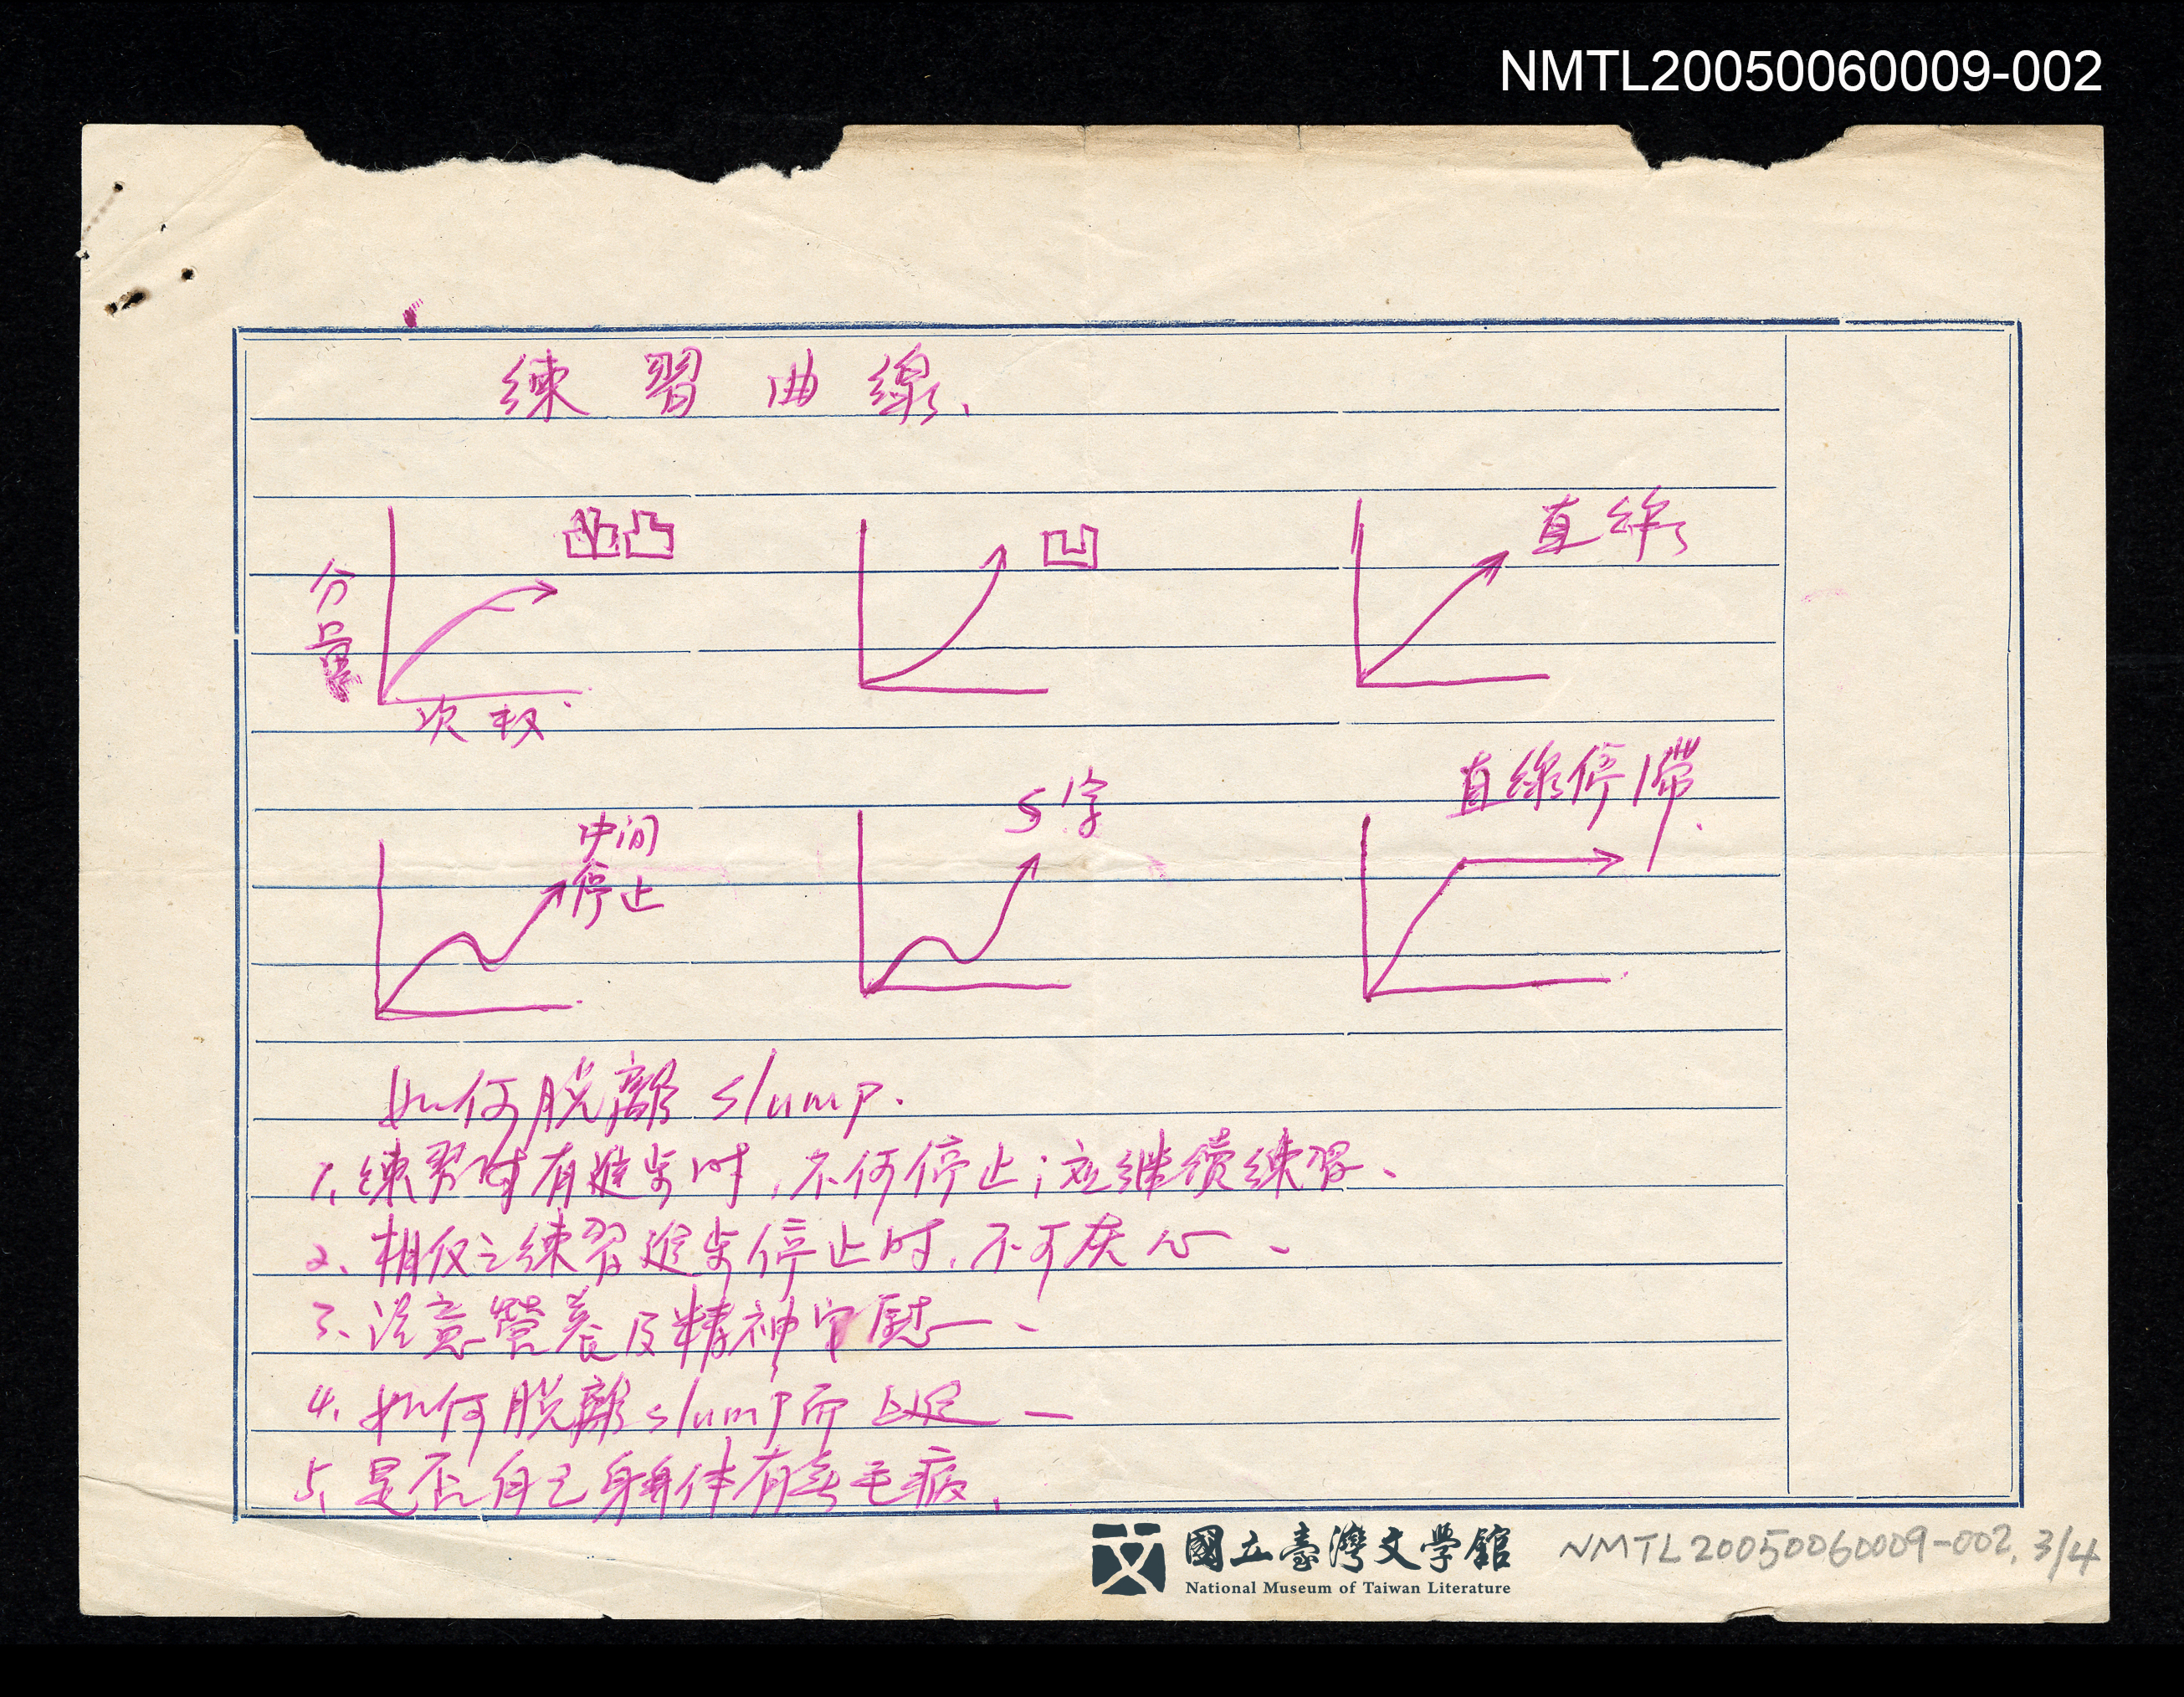 NMTL20050060009-002
練習曲線、
凸 凹 直線
分量
次数
中间
停止
S字
直線停滯.
如何脱離 slump.
1、練習時有進步时,不何停止;应继续練習、
2、相仅之練習進步停止时,不可灰心、
3、注意营养及精神安慰、
4、如何脱離slump而
5、是否自己身体有毛病、
國立臺灣文學館
National Museum of Taiwan Literature
NMTL20050060009-002, 3/4